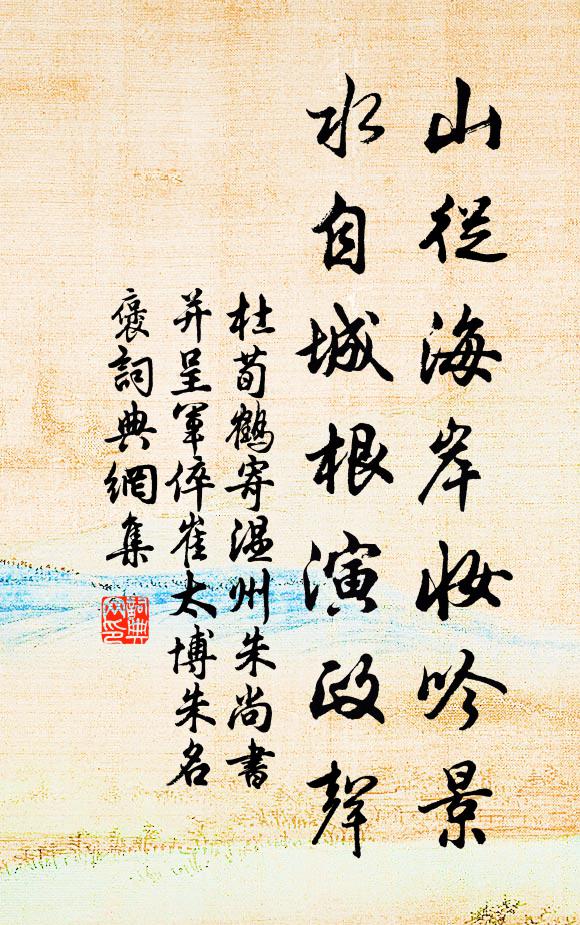 山從海岸妝吟景
水自城根演政聲
杜荀鶴寄溫州朱尚書
并呈軍倅崔太博朱名
褒詞典網集
詞典